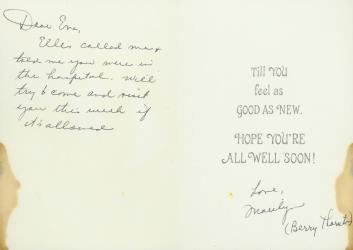 Dear Eva,
Ellis called me &
told me you were in
the hospital. We'll
try to come and visit
you this week if
it's allowed
Till YOU
feel as
GOOD AS NEW.
HOPE YOU'RE
ALL WELL SOON!
Love,
Marilyn
(Berry